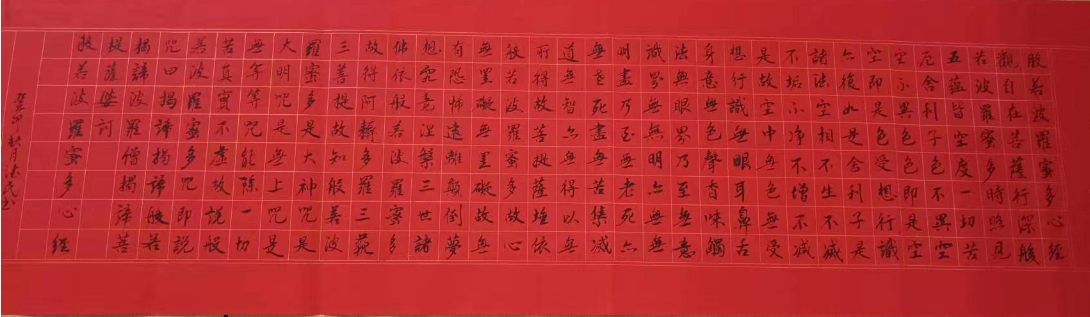 般若波羅蜜多心經
觀自在菩薩行深般
若波羅蜜多時照見
五蘊皆空度一切苦
厄舍利子色不異空
空不異色色即是空
空即是色受想行識
亦復如是舍利子是
諸法空相不生不滅
不垢不淨不增不減
是故空中無色無受
想行識無眼耳鼻舌
身意無色聲香味觸
法無眼界乃至無意
識界無無明亦無無
明盡乃至無老死亦
無老死盡無苦集滅
道無智亦無得以無
所得故菩提薩埵依
般若波羅蜜多故心
無罣礙無罣礙故無
有恐怖遠離顛倒夢
想究竟涅槃三世諸
佛依般若波羅蜜多
故得阿耨多羅三藐
三菩提故知般若波
羅蜜多是大神咒是
大明咒是無上咒是
無等等咒能除一切
苦真實不虛故說般
若波羅蜜多咒即說
咒曰揭諦揭諦般若
揭諦波羅僧揭諦菩
提薩婆訶
般若波羅蜜多心經
秋月